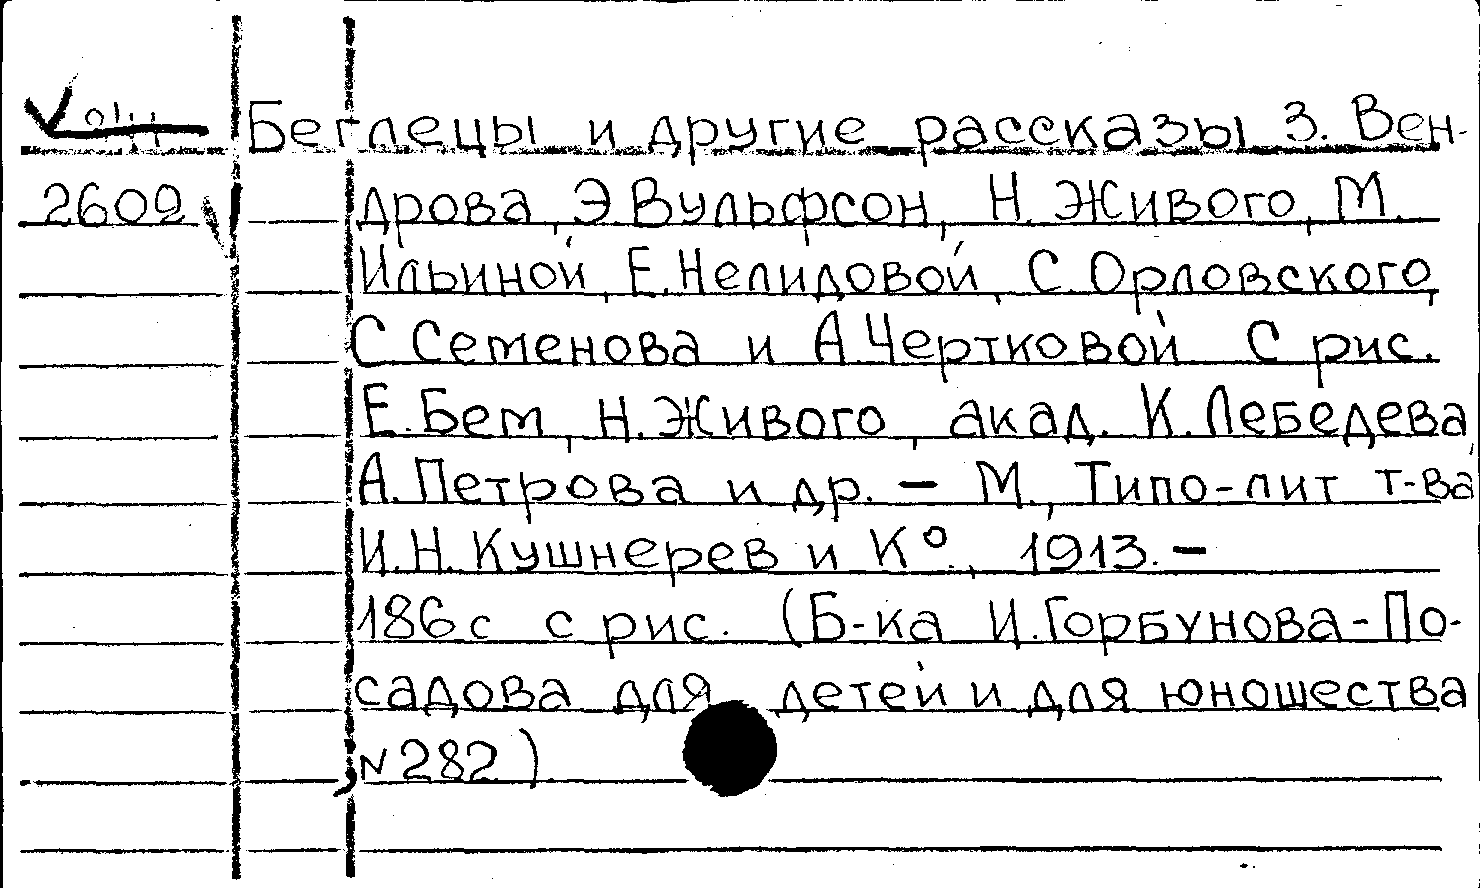 Беглецы и другие рассказы З. Вен-
2602 дрова, Э. Вульфсон, Н. Живого, М.
Ильиной, Е. Нелидовой, С. Орловского,
С. Семенова и А. Чертковой. С рис.
Е. Бем, Н. Живого, акад. К. Лебедева,
А. Петрова и др. — М., Типо-лит т-ва
И.Н. Кушнерев и К°., 1913. —
186 с с рис. (Б-ка И. Горбунова-По-
садова для детей и для юношества,
N 282)